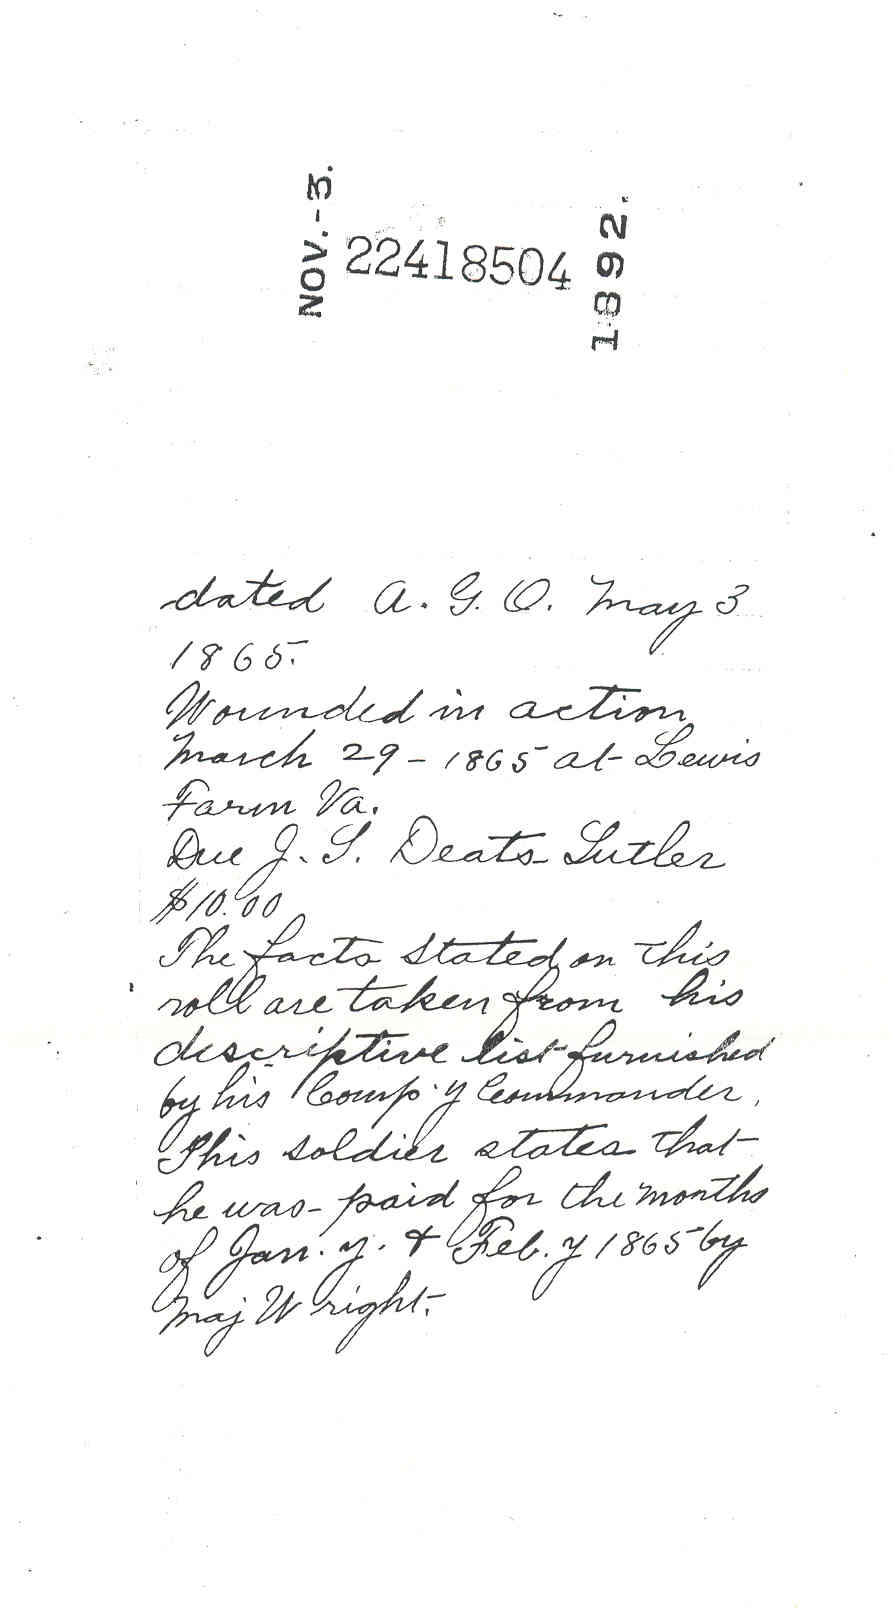 NOV.-3.
22418504
1892.
dated A. G. O. May 3
1865.
Wounded in action
March 29 - 1865 at Lewis
Farm Va.
Due J. S. Deats Sutler
$10.00
The facts stated on this
roll are taken from his
descriptive list furnished
by his Comp.y Commander.
This soldier states that
he was paid for the months
of Jan.y. & Feb.y 1865 by
Maj Wright.